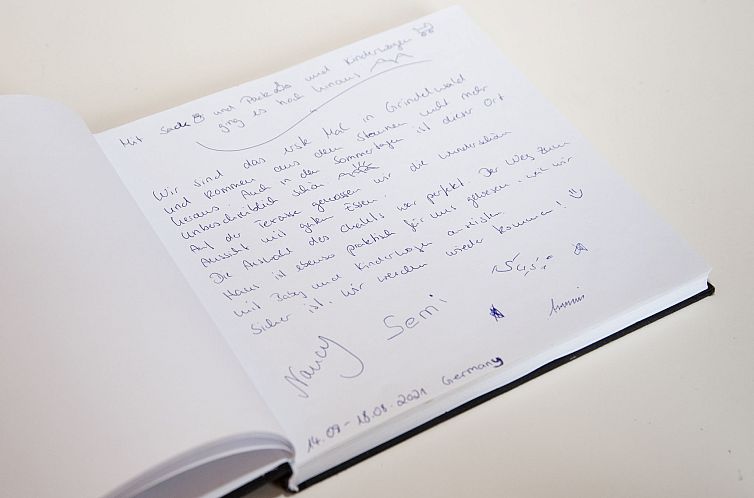 Mit Sack & und Pack und Kinderwagen
ging es hoch hinaus
Wir sind das erste Mal in Grindelwald
und kommen aus dem Staunen nicht mehr
heraus. Auch in den Sommertagen ist dieser Ort
unbeschreiblich schön
Auf der Terasse genossen wir die wunderschöne
Aussicht mit gutem Essen.
Die Auswahl des Chalets war perfekt. Der Weg zum
Haus ist ebenso praktisch für uns gewesen, weil wir
mit Baby und Kinderwagen anreisten.
Sicher ist, wir werden wieder kommen!
Nancy Semi
14.09 - 18.09.2021 Germany